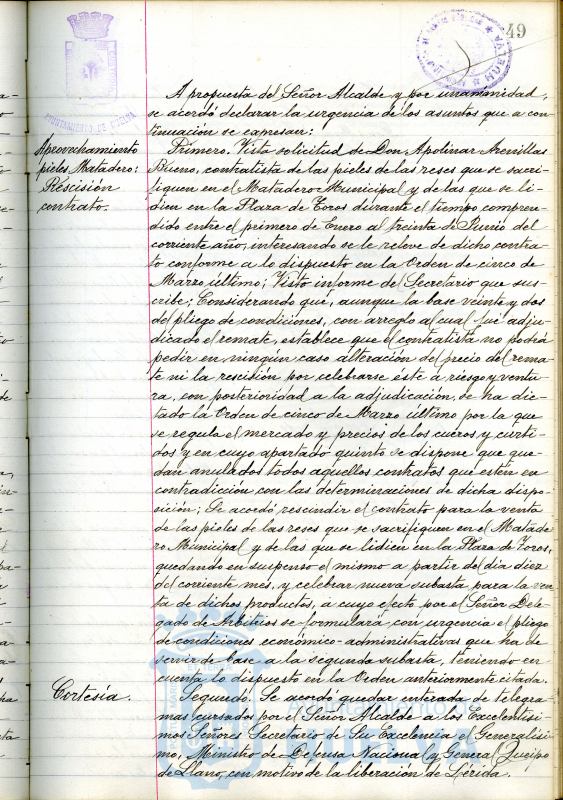 49
AYUNTAMIENTO DE HUELVA
A propuesta del Señor Alcalde y por unanimidad,
se acordó declarar la urgencia de los asuntos que a con-
tinuación se expresan:
Aprovechamiento
pieles Matadero:
Rescisión
contrato.
Primero. Vista solicitud de Don Apolinar Arenillas
Bueno, contratista de las pieles de las reses que se sacri-
fiquen en el Matadero Municipal y de las que se li-
dien en la Plaza de Toros durante el tiempo compren-
dido entre el primero de Enero al treinta de Junio del
corriente año, interesando se le releve de dicho contra-
to conforme a lo dispuesto en la Orden de cinco de
Marzo último; Visto informe del Secretario que sus-
cribe; Considerando que, aunque la base veinte y dos
del pliego de condiciones, con arreglo al cual fué adju-
dicado el remate, establece que el contratista no podrá
pedir en ningún caso alteración del precio del rema-
te ni la rescisión por celebrarse éste a riesgo y ventu-
ra, con posterioridad a la adjudicación, se ha dic-
tado la Orden de cinco de Marzo último por la que
se regula el mercado y precios de los cueros y curti-
dos y en cuyo apartado quinto se dispone que que-
dan anulados todos aquellos contratos que estén en
contradición con las determinaciones de dicha dispo-
sición; Se acordó rescindir el contrato para la venta
de las pieles de las reses que se sacrifiquen en el Matade-
ro Municipal y de las que se lidien en la Plaza de Toros,
quedando en suspenso el mismo a partir del día diez
del corriente mes, y celebrar nueva subasta para la ven-
ta de dichos productos, a cuyo efecto por el Señor Dele-
gado de Arbitrios se formulará con urgencia el pliego
de condiciones económico-administrativas que ha de
servir de base a la segunda subasta, teniendo en
cuenta lo dispuesto en la Orden anteriormente citada.
Cortesía.
Segundo. Se acordó quedar enterada de telegra-
mas cursados por el Señor Alcalde a los Excelentísi-
mos Señores Secretario de Su Excelencia el Generalísi-
mo, Ministro de Defensa Nacional y General Queipo
de Llano, con motivo de la liberación de Lérida.